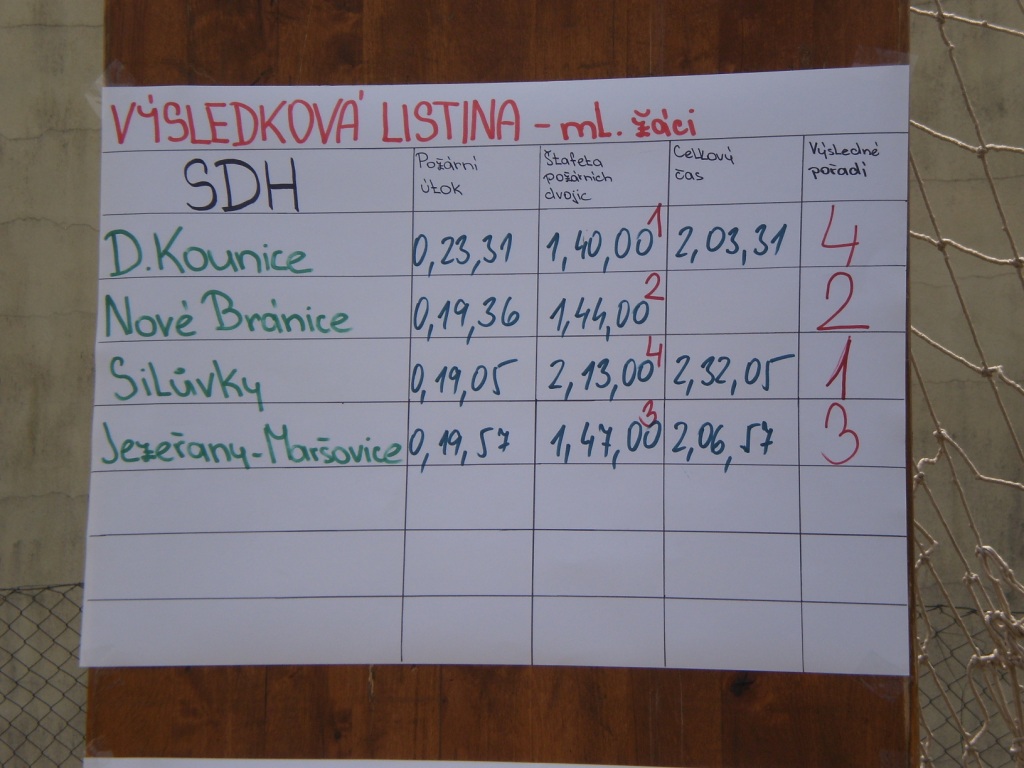 VÝSLEDKOVÁ LISTINA - ml. žáci
SDH Požární útok Štafeta požárních dvojic Celkový čas Výsledné pořadí
D. Kounice 0,23,31 1,40,00 1 2,03,31 4
Nové Bránice 0,19,36 1,44,00 2 2
Silůvky 0,19,05 2,13,00 4 2,32,05 1
Jezeřany-Maršovice 0,19,57 1,47,00 3 2,06,57 3